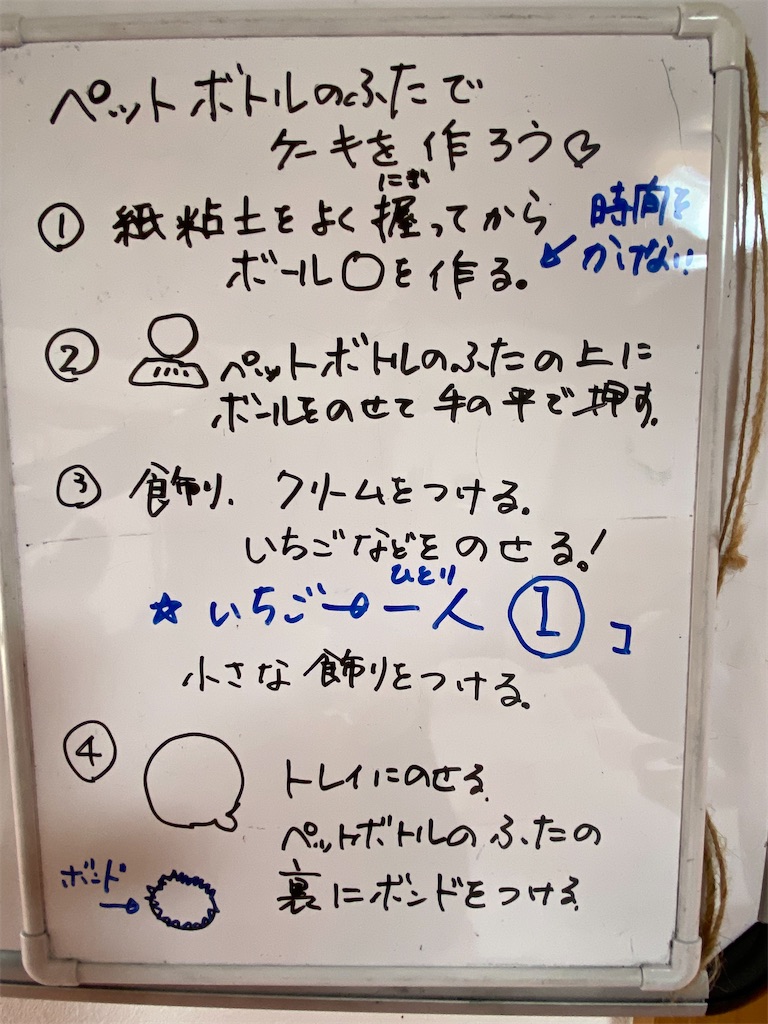 ペットボトルのふたで
ケーキを作ろう♡
① 紙粘土をよく握ってから
にぎ
ボール〇を作る。
時間を
かけない!
② ペットボトルのふたの上に
ボールをのせて手の平で押す。
③ 飾り、クリームをつける。
いちごなどをのせる!
ひとり
☆ いちご→一人 ① コ
小さな飾りをつける。
④ トレイにのせる。
ペットボトルのふたの
裏にボンドをつける
ボンド
→